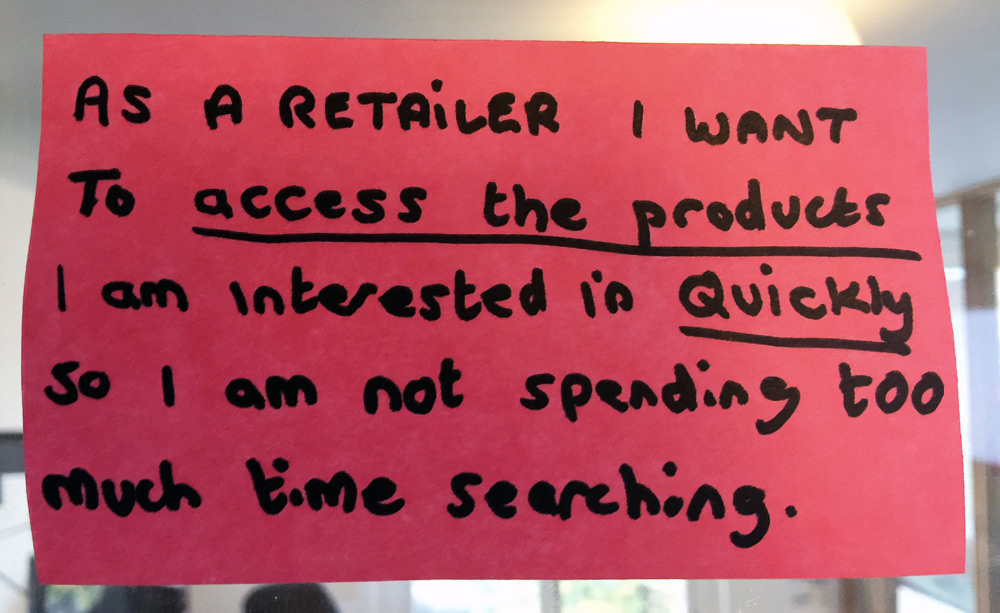 AS A RETAiLER I WANT
To access the products
I am interested in Quickly
so I am not spending too
much time searching.